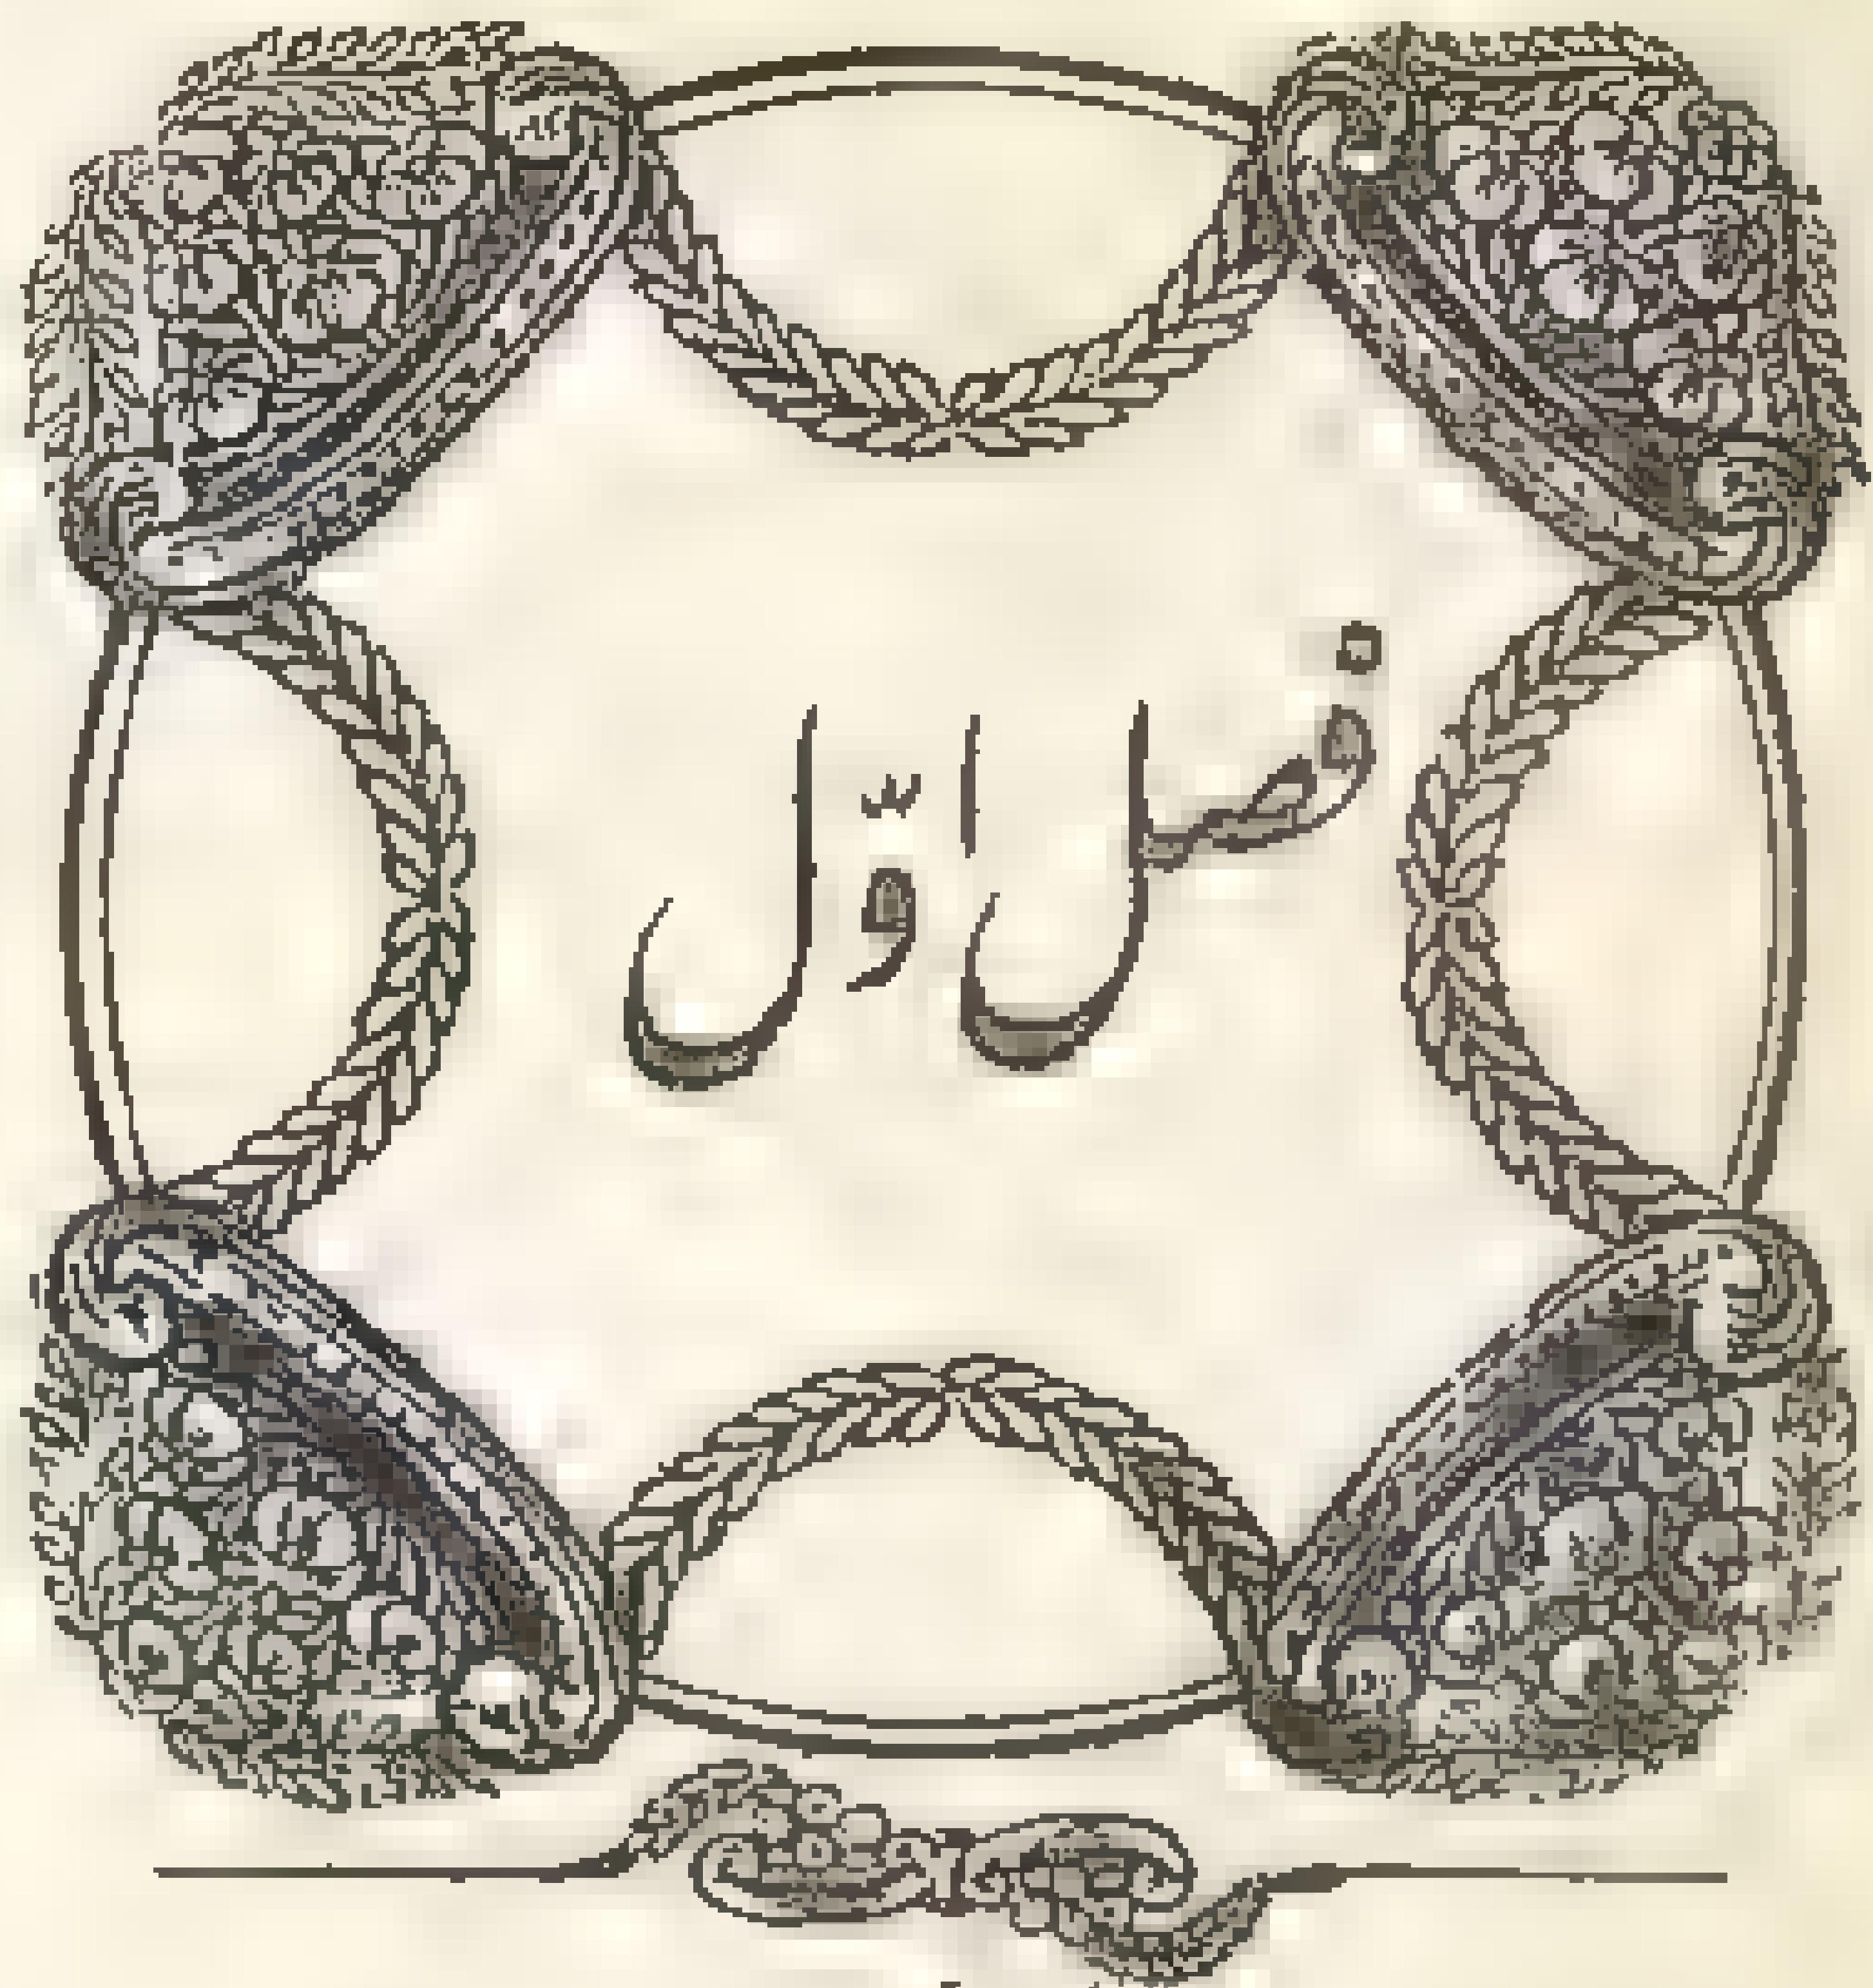 فصل اوّل